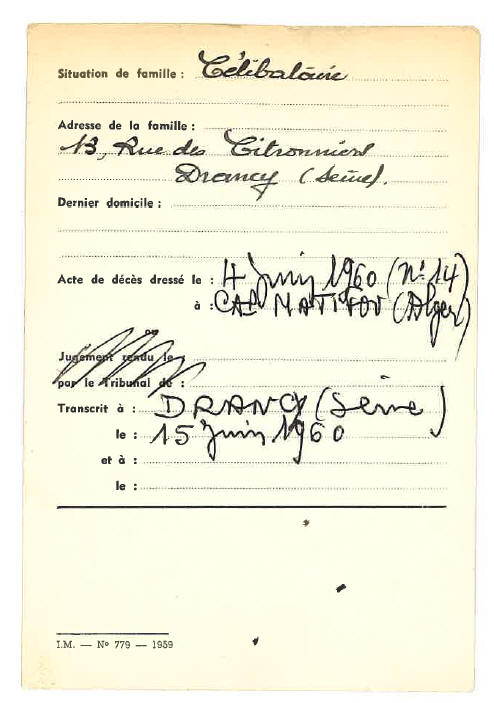 Situation de famille : Célibataire
Adresse de la famille :
13, Rue des Citronniers
Drancy (Seine).
Dernier domicile :
Acte de décès dressé le : 4 juin 1960 (N° 14)
à : CAP MATIFOU (Alger)
ou
Jugement rendu le :
par le Tribunal de :
Transcrit à : DRANCY (Seine)
le : 15 juin 1960
et à :
le :
I.M. — N° 779 — 1959